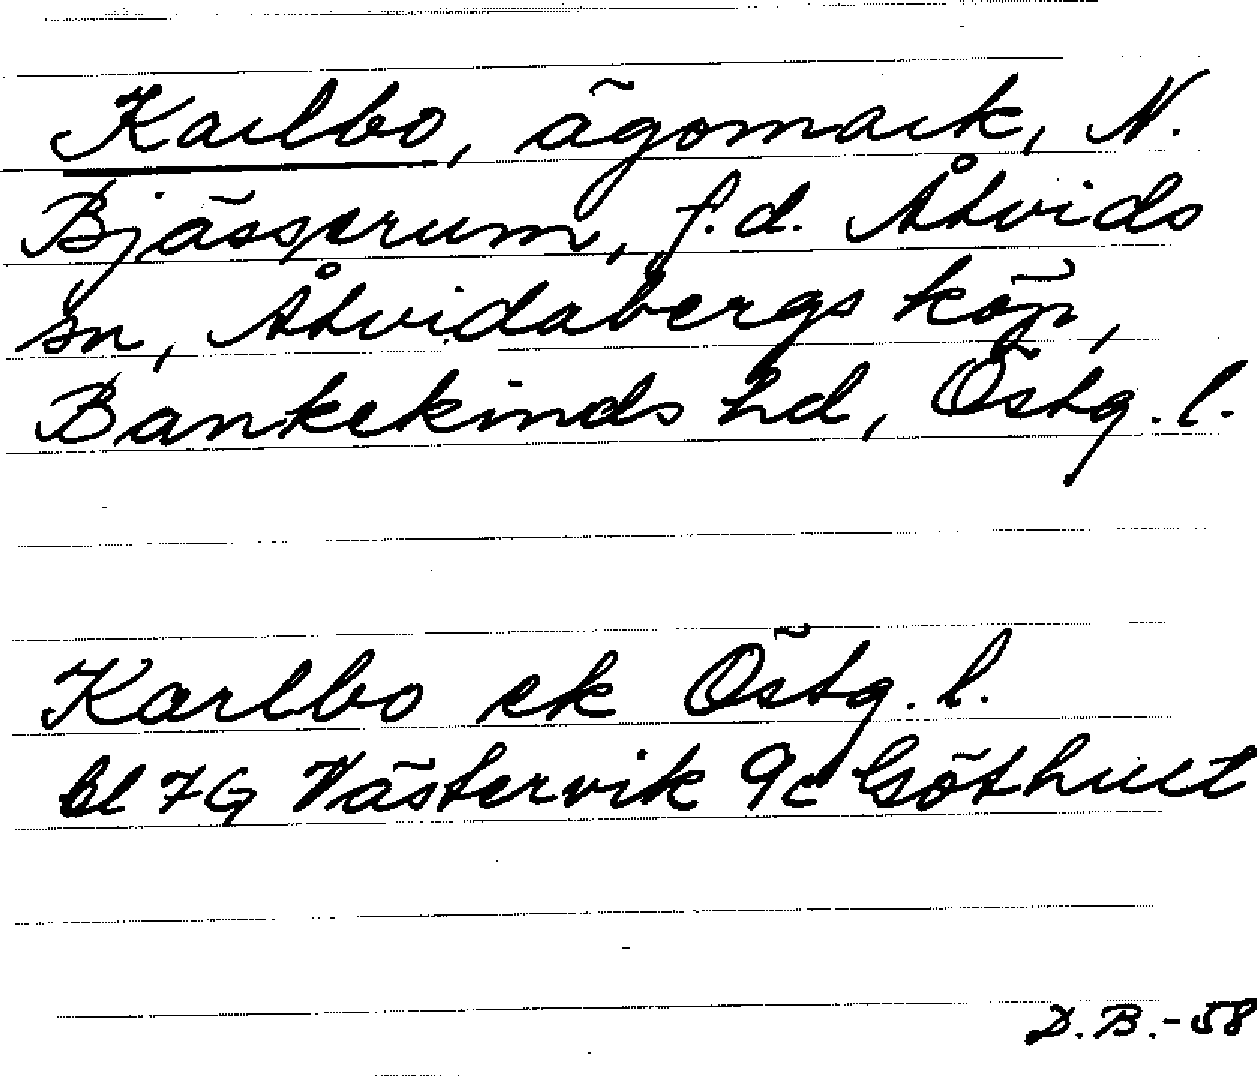 Karlbo, ägomark, N.
Bjässerum, f.d. Åtvids
sn, Åtvidabergs köp,
Bankekinds hd, Östg. l.
Karlbo ek Östg. l.
bl 7G Västervik 9c Göthult
D.B.-58